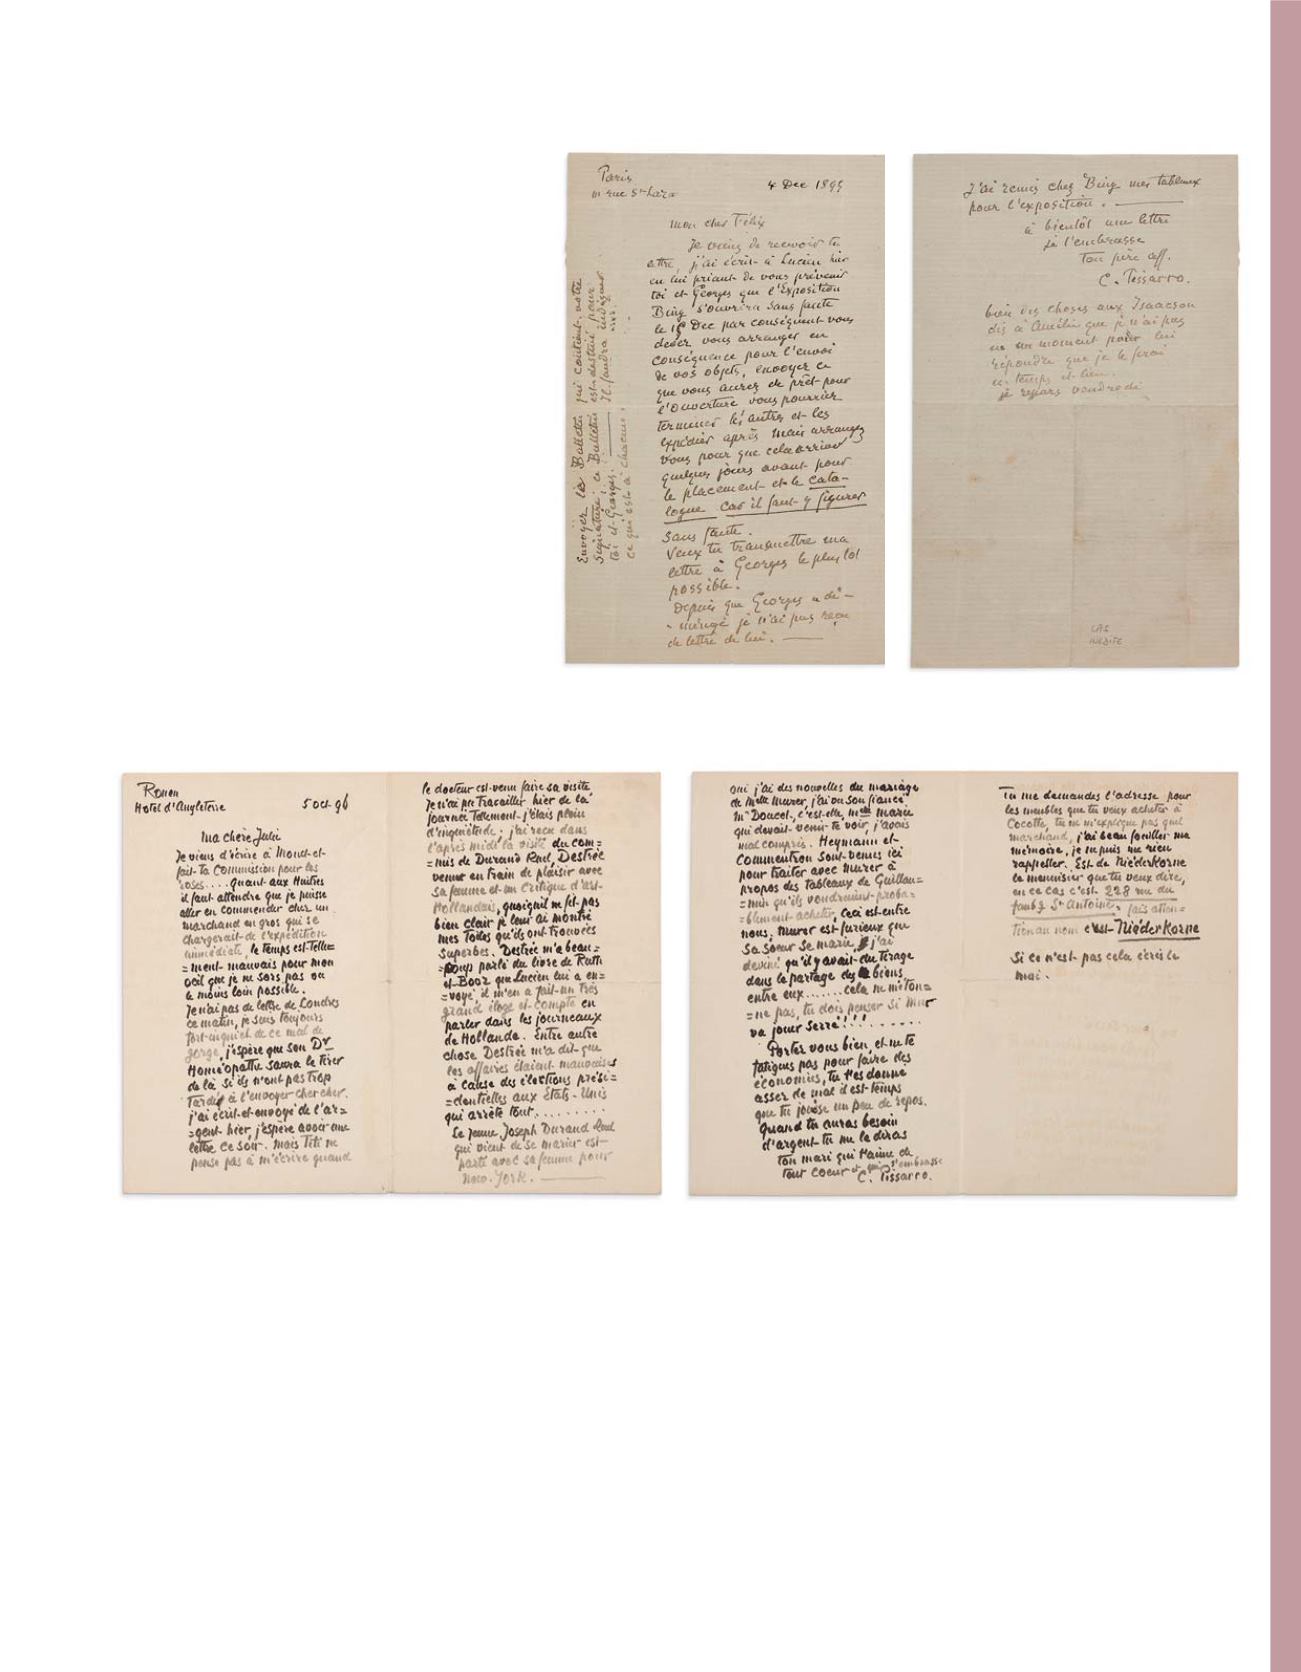 Paris
111 rue St Lazare
4 Dec 1895
mon cher Félix
Je viens de recevoir ta
lettre, j'ai écrit à Lucien hier
en lui priant de vous prévenir
toi et Georges que l'Exposition
Bing s'ouvrira sans faute
le Dec par conséquent vous
devez vous arranger en
conséquence pour l'envoi
de vos objets, envoyez ce
que vous aurez de prêt pour
l'ouverture vous pourrier
terminer les autres et les
expédier après mais arrangez
vous pour que cela arrive
quelques jours avant pour
le placement et le cata-
logue car il faut y figurer
sans faute.
Veux tu transmettre ma
lettre à Georges le plus tot
possible.
Depuis que Georges a dé-
-ménagé je n'ai pas reçu
de lettre de lui.
Envoyer les Bulletin qui contient votre
signature; ce Bulletin est destiné pour
toi et Georges. Il faudra indiquer
ce qui est à chacun.
J'ai remis chez Bing mes tableaux
pour l'exposition.
à bientôt une lettre
je t'embrasse
ton père aff.
C. Pissarro.
bien des choses aux Isaacson
dis à Amélie que je n'ai pas
eu un moment pour lui
répondre que je le ferai
en temps et lieu.
je repars vendredi
LAS
INEDITE
Rouen
Hotel d'Angleterre
5 oct 96
Ma chère Julie
Je viens d'écrire à Monet et
fait ta Commission pour les
roses.... Quant aux Huitres
il faut attendre que je puisse
aller en commender chez un
marchand en gros qui se
chargerait de l'expédition
immédiate, le temps est telle=
=ment mauvais pour mon
oeil que je ne sors pas ou
le moins loin possible.
Je n'ai pas de lettre de Londres
ce matin, je suis toujours
fort inquiet de ce mal de
gorge, j'espère que son Dr
Homéopathe saura le tirer
de là si ils n'ont pas trop
Tardé à l'envoyer chercher.
j'ai écrit et envoyé de l'ar=
=gent hier, j'espère avoir une
lettre ce soir. mais Titi ne
pense pas à m'écrire quand
le docteur est venu faire sa visite
Je n'ai pu travailler hier de la
journée Tellement j'étais plein
d'inquiétude. j'ai reçu dans
l'après midi la visite du com=
=mis de Durand Ruel, Destrée
venue en train de plaisir avec
sa femme et un Critique d'art
Hollandais, quoiqu'il ne fit pas
bien clair je leur ai montré
mes Toiles qu'ils ont trouvées
superbes. Destrée m'a beau=
=coup parlé du livre de Ruth
et Booz que Lucien lui a en=
=voyé il m'en a fait un très
grand éloge et compte en
parler dans les journeaux
de Hollande. Entre autre
chose Destrée m'a dit que
les affaires étaient mauvaises
à cause des élections prési=
=dentielles aux Etats-Unis
qui arrête tout.........
Le jeune Joseph Durand Ruel
qui vient de se marier est
parti avec sa femme pour
New-York.
oui j'ai des nouvelles du mariage
de Melle Murer, j'ai vu son fiancé
Mr Doucet, c'est elle, marie
qui devait venir te voir, j'avais
mal compris. Heymann et
Commentron sont venus ici
pour traiter avec Murer à
propos des tableaux de Guillau=
=min qu'ils voudraient proba=
=blement acheter, ceci est entre
nous; Murer est furieux que
sa soeur se marie, j'ai
deviné qu'il y avait du tirage
dans le partage des biens
entre eux...... cela ne m'éton=
=ne pas, tu dois penser si Mur
va jouer serré!!!.......
Portez vous bien et ne te
fatigues pas pour faire des
économies, tu t'es donné
asser de mal il est temps
que tu jouisse un peu de repos.
Quand tu auras besoin
d'argent tu me le diras
Ton mari qui t'aime de
tout coeur et qui t'embrasse
C. Pissarro.
Tu me demandes l'adresse pour
les meubles que tu veux acheter à
Cocotte, tu ne m'explique pas quel
marchand, j'ai beau fouiller ma
mémoire, je ne puis me rien
rappeller. Est-ce Niederkorne
le menuisier que tu veux dire,
en ce cas c'est 228 rue du
faubg St Antoine, fais atten=
tion au nom c'est Niederkorne
Si ce n'est pas cela écris le
moi.